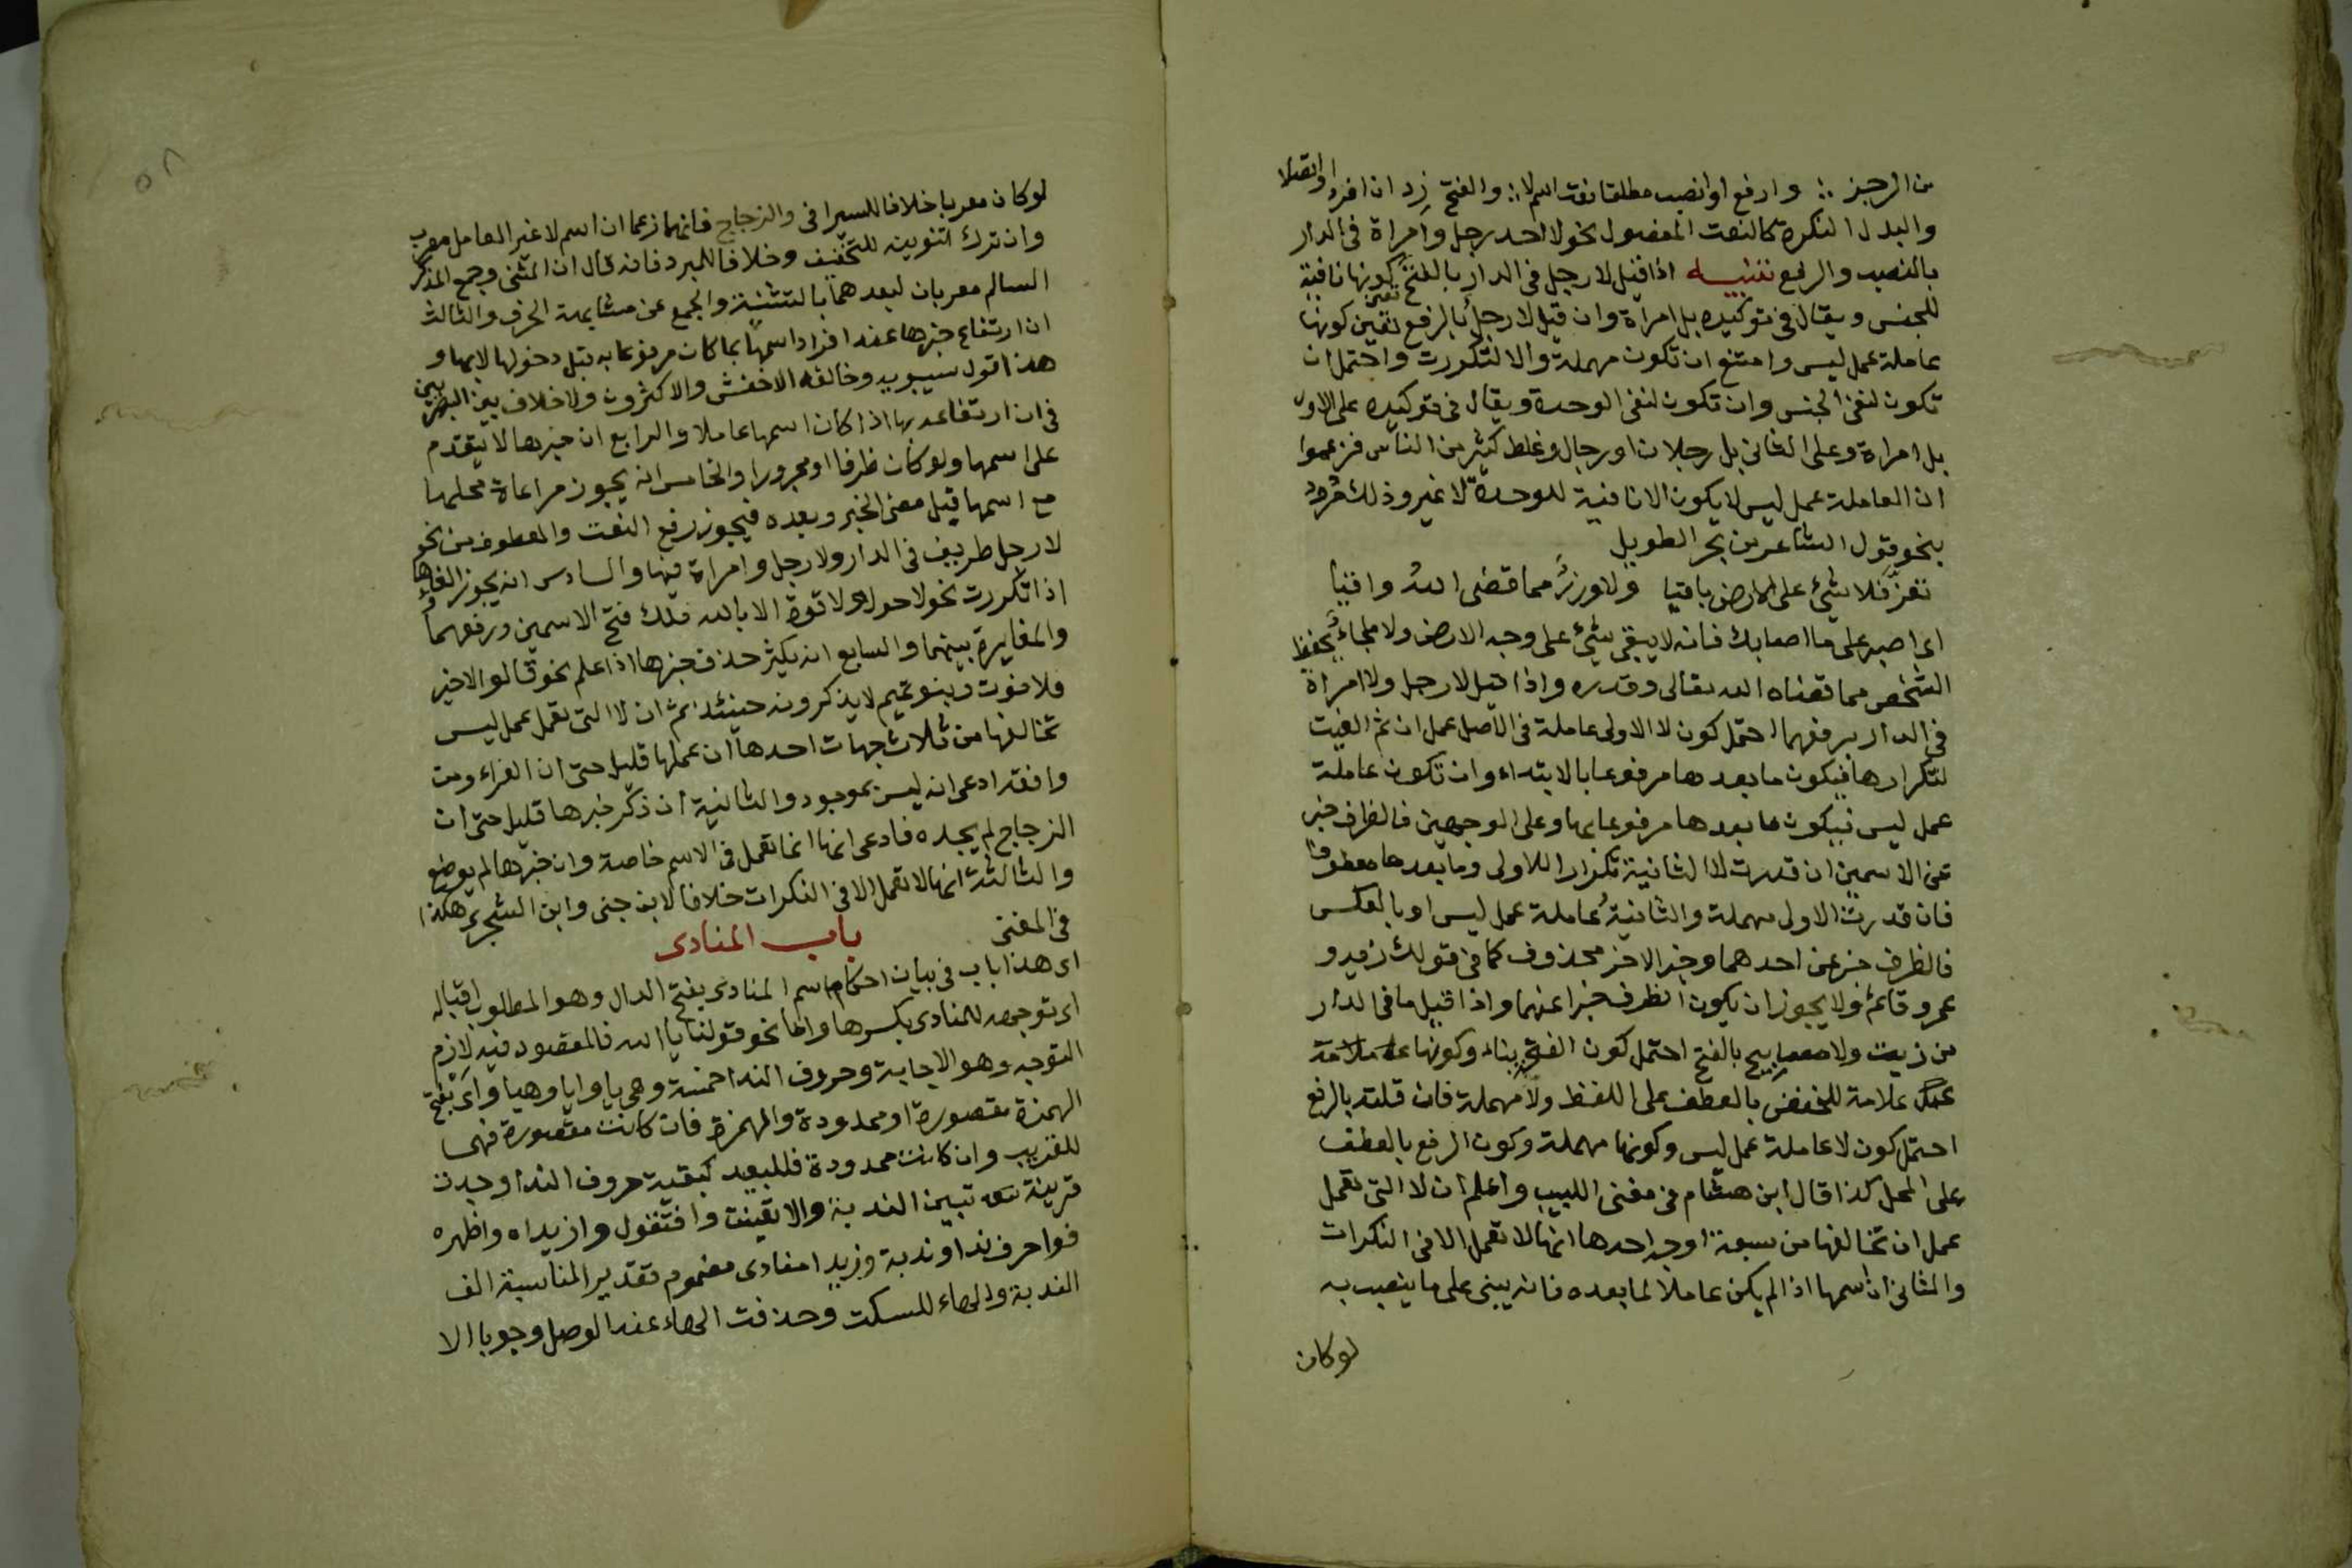 من الرجز ∴ وارفع او انصب مطلقا نعت اسم لا ∴ والفتح زد ان افردا واتصلا
والبدل النكرة كالنعت المفصول نحو لا احد رجل وامراة فى الدار
بالنصب والرفع تنبيه اذا قيل لا رجل فى الدار بالفتح تعين كونها نافية
للجنس ويقال فى توكيده بل امراة وان قيل لا رجل بالرفع تعين كونها
عاملة عمل ليس وامتنع ان تكون مهملة والا لتكررت واحتمل ان
تكون لنفى الجنس وان تكون لنفى الوحدة ويقال فى توكيده على الاول
بل امراة وعلى الثانى بل رجلان او رجال وغلط كثير من الناس فزعموا
ان العاملة عمل ليس لا يكون الا نافية للوحدة لا غير وذلك مردود
بنحو قول الشاعر من بحر الطويل
تعزّ فلا شئ على الارض باقيا ولا وزرٌ مما قضى اللهُ واقيا
اى اصبر على ما اصابك فانه لا يبقى شئ على وجه الارض ولا ملجاء يحفظ
الشخص مما قضاه الله تعالى وقدره واذا قيل لا رجل ولا امراة
فى الدار برفعهما احتمل كون لا الاولى عاملة فى الاصل عمل ان ثم الغيت
لتكرارها فيكون ما بعدها مرفوعا بالابتداء وان تكون عاملة
عمل ليس فيكون ما بعدها مرفوعا بها وعلى الوجهين فالظرف خبر
عن الاسمين ان قدرت لا الثانية تكرارا للاولى وما بعدها معطوفا
فان قدرت الاولى مهملة والثانية عاملة عمل ليس او بالعكس
فالظرف خبر عن احدهما وخبر الاخر محذوف كما فى قولك زيد و
عمرو قائم ولا يجوز ان يكون الظرف خبرا عنهما واذا قيل ما فى الدار
من زيت ولا مصابيح بالفتح احتمل كون الفتح بناء وكونها علامة
علامة للخفض بالعطف على اللفظ ولا مهملة فان قلته بالرفع
احتمل كون لا عاملة عمل ليس وكونها مهملة وكون الرفع بالعطف
على المحل كذا قال ابن هشام فى مغنى اللبيب واعلم ان لا التى تعمل
عمل ان تخالفها من سبعة اوجه احدها انها لا تعمل الا فى النكرات
والثانى ان اسمها اذا لم يكن عاملا لما بعده فانه يبنى على ما ينصب به
لو كان
لو كان معربا خلافا للسيرافى والزجاج فانهما زعما ان اسم لا غير العامل معرب
وان ترك التنوين للتخفيف وخلافا للمبرد فانه قال ان المثنى وجمع المذكر
السالم معربان لبعدهما بالتثنية والجمع عن مشابهة الحرف والثالث
ان ارتفاع خبرها عند افراد اسمها بما كان مرفوعا به قبل دخولها لا بها و
هذا قول سيبويه وخالفه الاخفش والاكثرون ولا خلاف بين البصريين
فى ان ارتفاعه بها اذا كان اسمها عاملا والرابع ان خبرها لا يتقدم
على اسمها ولو كان ظرفا او مجرورا والخامس انه يجوز مراعاة محلها
مع اسمها قبل مضى الخبر وبعده فيجوز رفع النعت والمعطوف من نحو
لا رجل ظريف فى الدار ولا رجل وامراة فيها والسادس انه يجوز الغاؤها
اذا تكررت نحو لا حول ولا قوة الا بالله فلك فتح الاسمين ورفعهما
والمغايرة بينهما والسابع انه يكثر حذف خبرها اذا علم نحو قالوا لا ضير
فلا فوت وبنو تميم لا يذكرونه حينئذ ثم ان لا التى تعمل عمل ليس
تخالفها من ثلاث جهات احدها ان عملها قليل حتى ان الفراء ومن
وافقه ادعى انه ليس بموجود والثانية ان ذكر خبرها قليل حتى ان
الزجاج لم يجده فادعى انها انما تعمل فى الاسم خاصة وان خبرها لم يوضع
والثالثة انها لا تعمل الا فى النكرات خلافا لابن جنى وابن الشجرى هكذا
فى المغنى باب المنادى
اى هذا باب فى بيان احكام اسم المنادى بفتح الدال وهو المطلوب اقباله
اى توجهه للمنادى بكسرها واما نحو قولنا يا الله فالمقصود فيه لازم
التوجه وهو الاجابة وحروف الندا خمسة وهى يا وايا وهيا واى بفتح
الهمزة مقصورة او ممدودة والهمزة فان كانت مقصورة فهما
للقريب وان كانت ممدودة فللبعيد كبقية حروف الندا وجدت
قرينة تبين الندبة والا تعينت وا فتقول وا زيداه واظهره
فوا حرف ندا وندبة وزيدا منادى مضموم تقدير المناسبة الف
الندبة والهاء للسكت وحذفت الهاء عند الوصل وجوبا الا